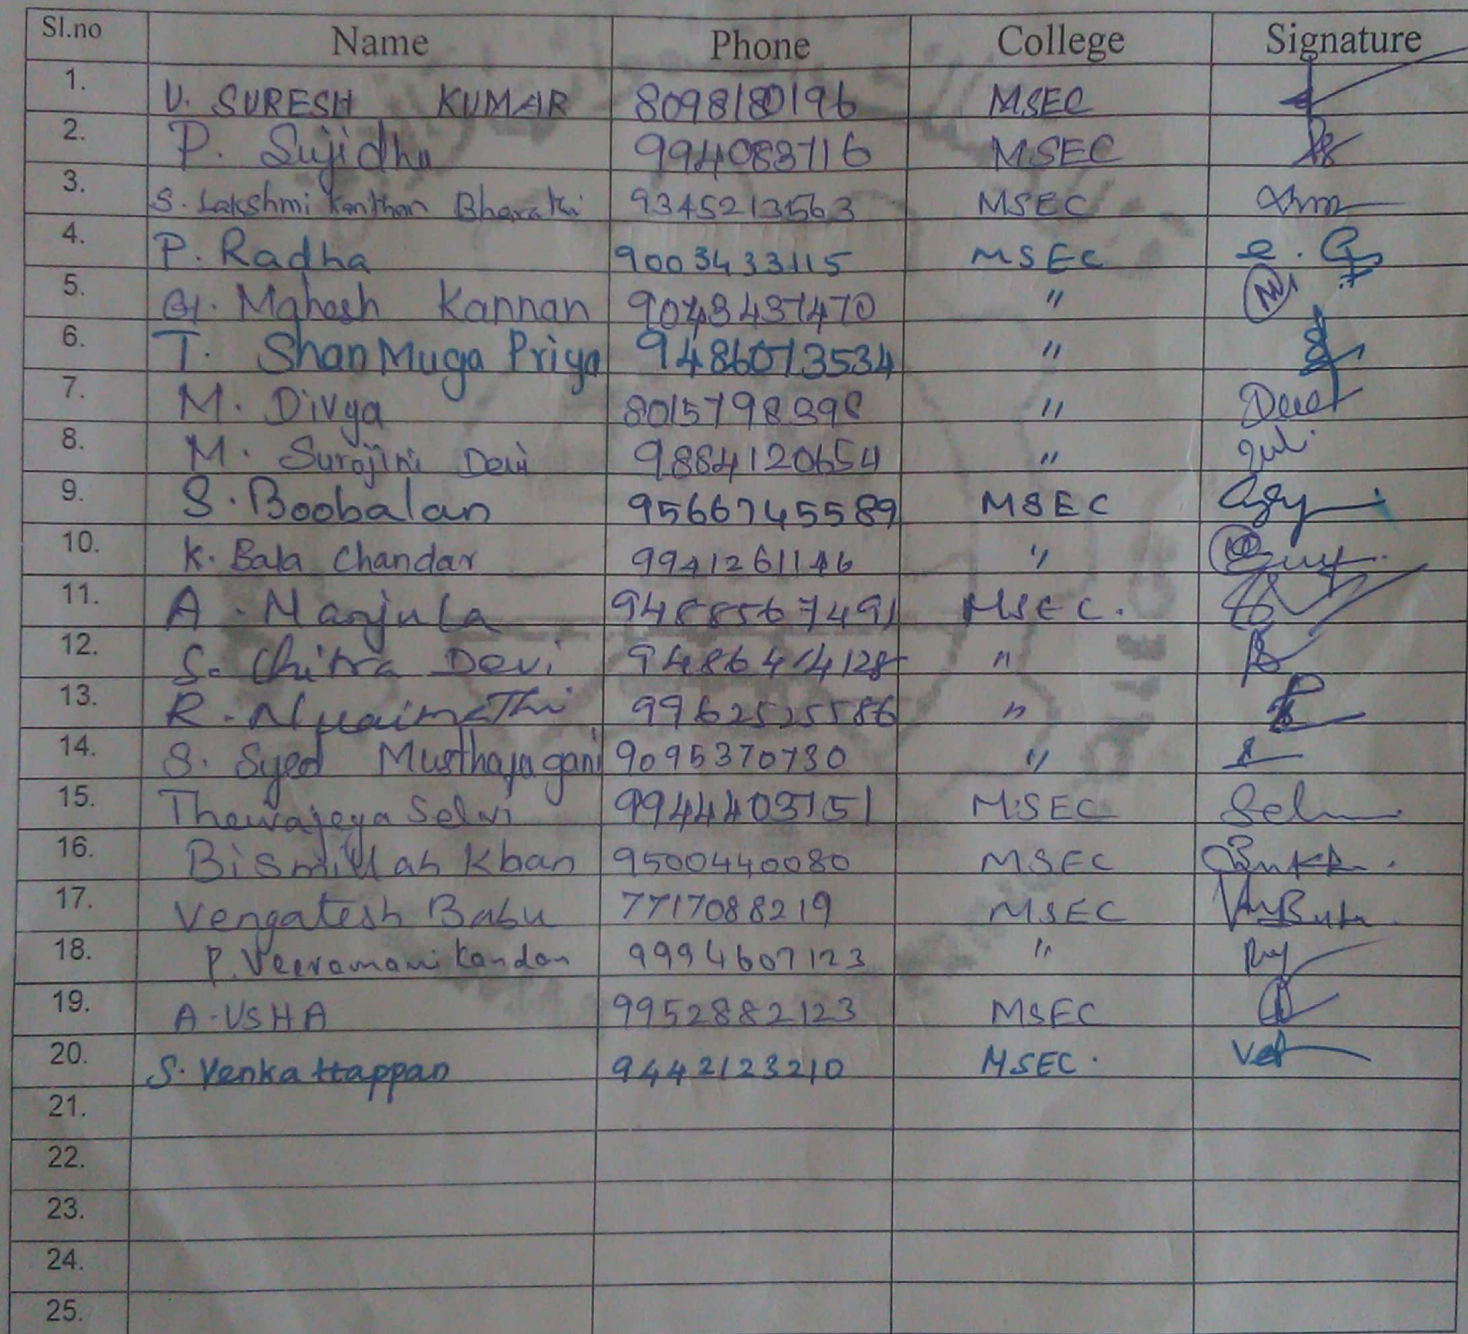 Sl.no Name Phone College Signature
1. V. SURESH KUMAR 8098180196 MSEC
2. P. Sujidha 994083716 MSEC
3. S. Lakshmi Kanthan Bharathi 9345213563 MSEC
4. P. Radha 9003433115 MSEC
5. G. Mahesh Kannan 9043437470 "
6. T. ShanMuga Priya 9486073534 "
7. M. Divya 8015798398 "
8. M. Surojini Devi 9884120654 "
9. S. Boobalan 9566745589 MSEC
10. K. Bala Chandar 9941261146 "
11. A. Manjula 9488567491 MSEC.
12. S. Chitra Devi "
13. R. 9962525586 "
14. S. Syed Musthaja gani 9095370730 "
15. Selvi 9944403151 MSEC Sel
16. Bismillah Khan 9500440080 MSEC
17. Vengatesh Babu 7717088219 MSEC
18. P. Veeramani Kandan 9994607123 "
19. A. USHA 9952882123 MSEC
20. S. Venkattappan 9442123210 MSEC.
21.
22.
23.
24.
25.